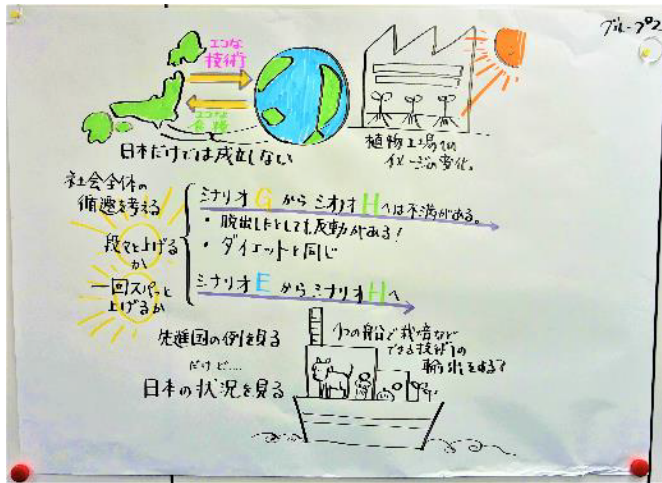 グループ2
エコな
技術
エコな
食糧
日本だけでは成立しない
植物工場での
イメージの変化。
社会全体の
循環を考える
段々と上げる
か
一回スパッと
上げるか
シナリオGからシナリオHへは不満がある。
・脱出したとしても反動がある!
・ダイエットと同じ
シナリオEからシナリオHへ
先進国の例を見る
だけど....
日本の状況を見る
1つの船で栽培など
できる技術の
輸出をする?